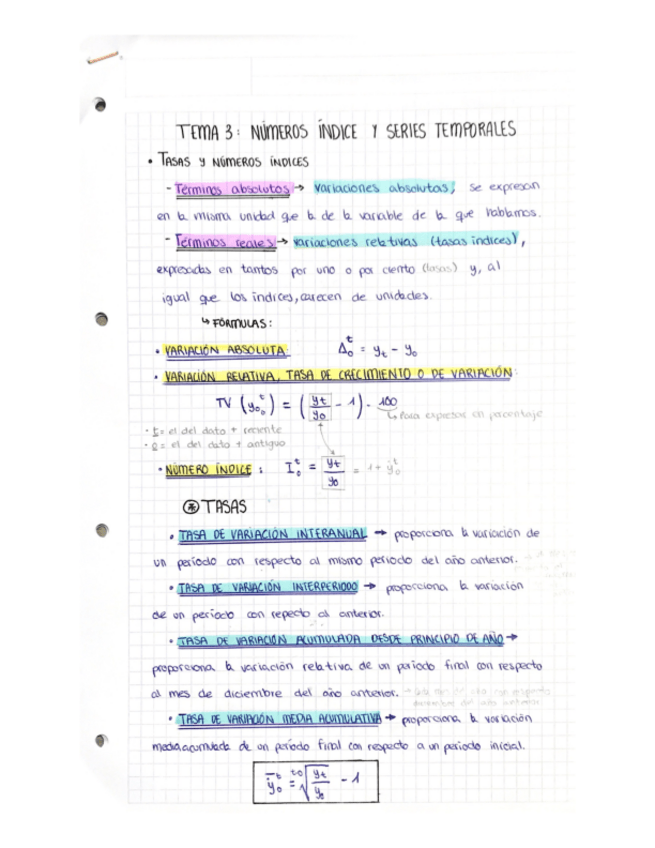 TEMA 3: NÚMEROS ÍNDICE Y SERIES TEMPORALES
• TASAS Y NÚMEROS ÍNDICES
- Términos absolutos → variaciones absolutas, se expresan
en la misma unidad que la de la variable de la que hablamos.
- Términos reales → variaciones relativas (tasas índices),
expresadas en tantos por uno o por ciento (tasas) y, al
igual que los índices, carecen de unidades.
↳ FÓRMULAS:
• VARIACIÓN ABSOLUTA: Δ₀ᵗ = yₜ - y₀
• VARIACIÓN RELATIVA, TASA DE CRECIMIENTO O DE VARIACIÓN:
TV (y₀ᵗ) = (yₜ/y₀ - 1) · 100
↳ Para expresar en porcentaje
· t = el del dato + reciente
· 0 = el del dato + antiguo
• NÚMERO ÍNDICE: I₀ᵗ = yₜ/y₀ = 1 + ẏ₀ᵗ
⊛ TASAS
• TASA DE VARIACIÓN INTERANUAL → proporciona la variación de
un período con respecto al mismo periodo del año anterior.
• TASA DE VARIACIÓN INTERPERIODO → proporciona la variación
de un período con repecto al anterior.
• TASA DE VARIACIÓN ACUMULADA DESDE PRINCIPIO DE AÑO →
proporciona la variación relativa de un periodo final con respecto
al mes de diciembre del año anterior.
• TASA DE VARIACIÓN MEDIA ACUMULATIVA → proporciona la variación
media acumulada de un período final con respecto a un periodo inicial.
ẏ₀ᵗ = ᵗ⁰√(yₜ/y₀) - 1